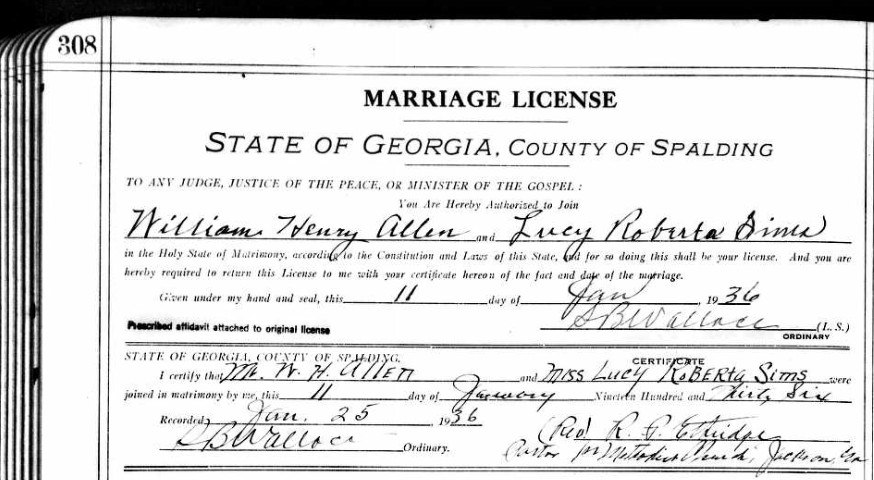 308
MARRIAGE LICENSE
STATE OF GEORGIA, COUNTY OF SPALDING
TO ANY JUDGE, JUSTICE OF THE PEACE, OR MINISTER OF THE GOSPEL :
You Are Hereby Authorized to Join
William Henry Allen and Lucy Roberta Sims
in the Holy State of Matrimony, according to the Constitution and Laws of this State, and for so doing this shall be your license. And you are
hereby required to return this License to me with your certificate hereon of the fact and date of the marriage.
Given under my hand and seal, this 11 day of Jan, 1936
Prescribed affidavit attached to original license S B Wallace (L. S.)
ORDINARY
CERTIFICATE
STATE OF GEORGIA, COUNTY OF SPALDING.
I certify that Mr. W. H. Allen and Miss Lucy Roberta Sims were
joined in matrimony by me, this 11 day of January Nineteen Hundred and Thirty Six
Recorded Jan. 25, 1936 (Rev) R. P. Etheridge
S B Wallace Ordinary. Pastor Methodist Church, Jackson, Ga